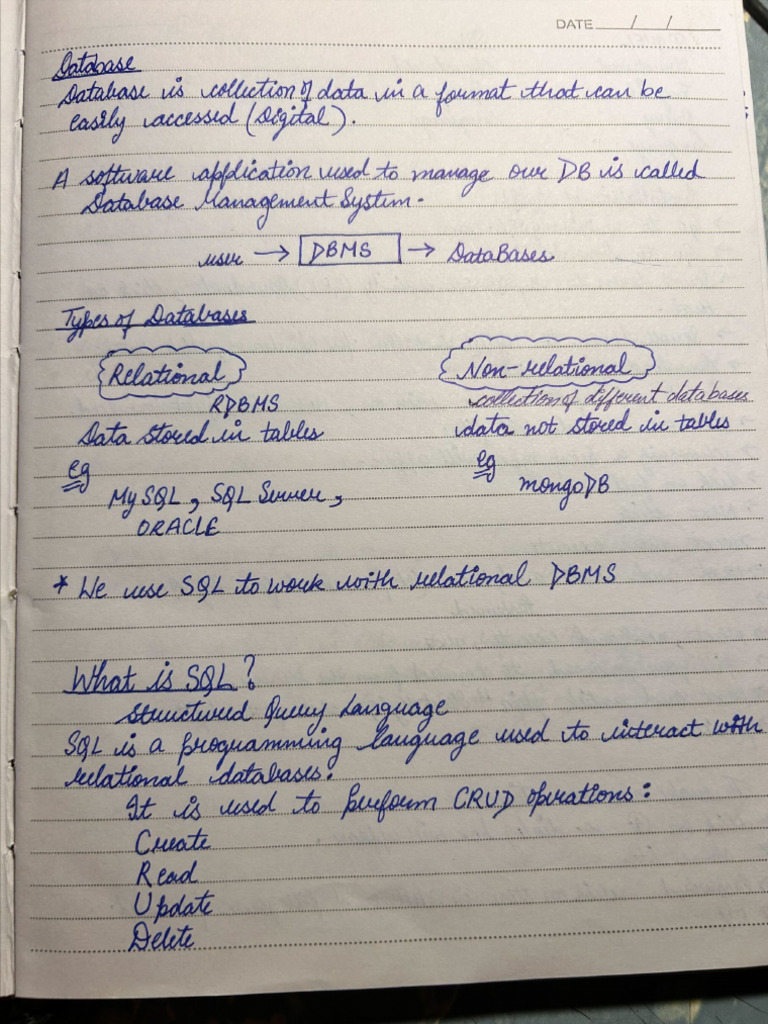 DATE / /
Database
Database is collection of data in a format that can be
easily accessed (Digital).
A software application used to manage our DB is called
Database Management System.
user → DBMS → DataBases
Types of Databases
Relational Non-relational
RDBMS collection of different databases
Data stored in tables data not stored in tables
eg eg
MySQL, SQL Server, mongoDB
ORACLE
* We use SQL to work with relational DBMS
What is SQL?
Structured Query Language
SQL is a programming language used to interact with
relational databases.
It is used to perform CRUD operations:
Create
Read
Update
Delete